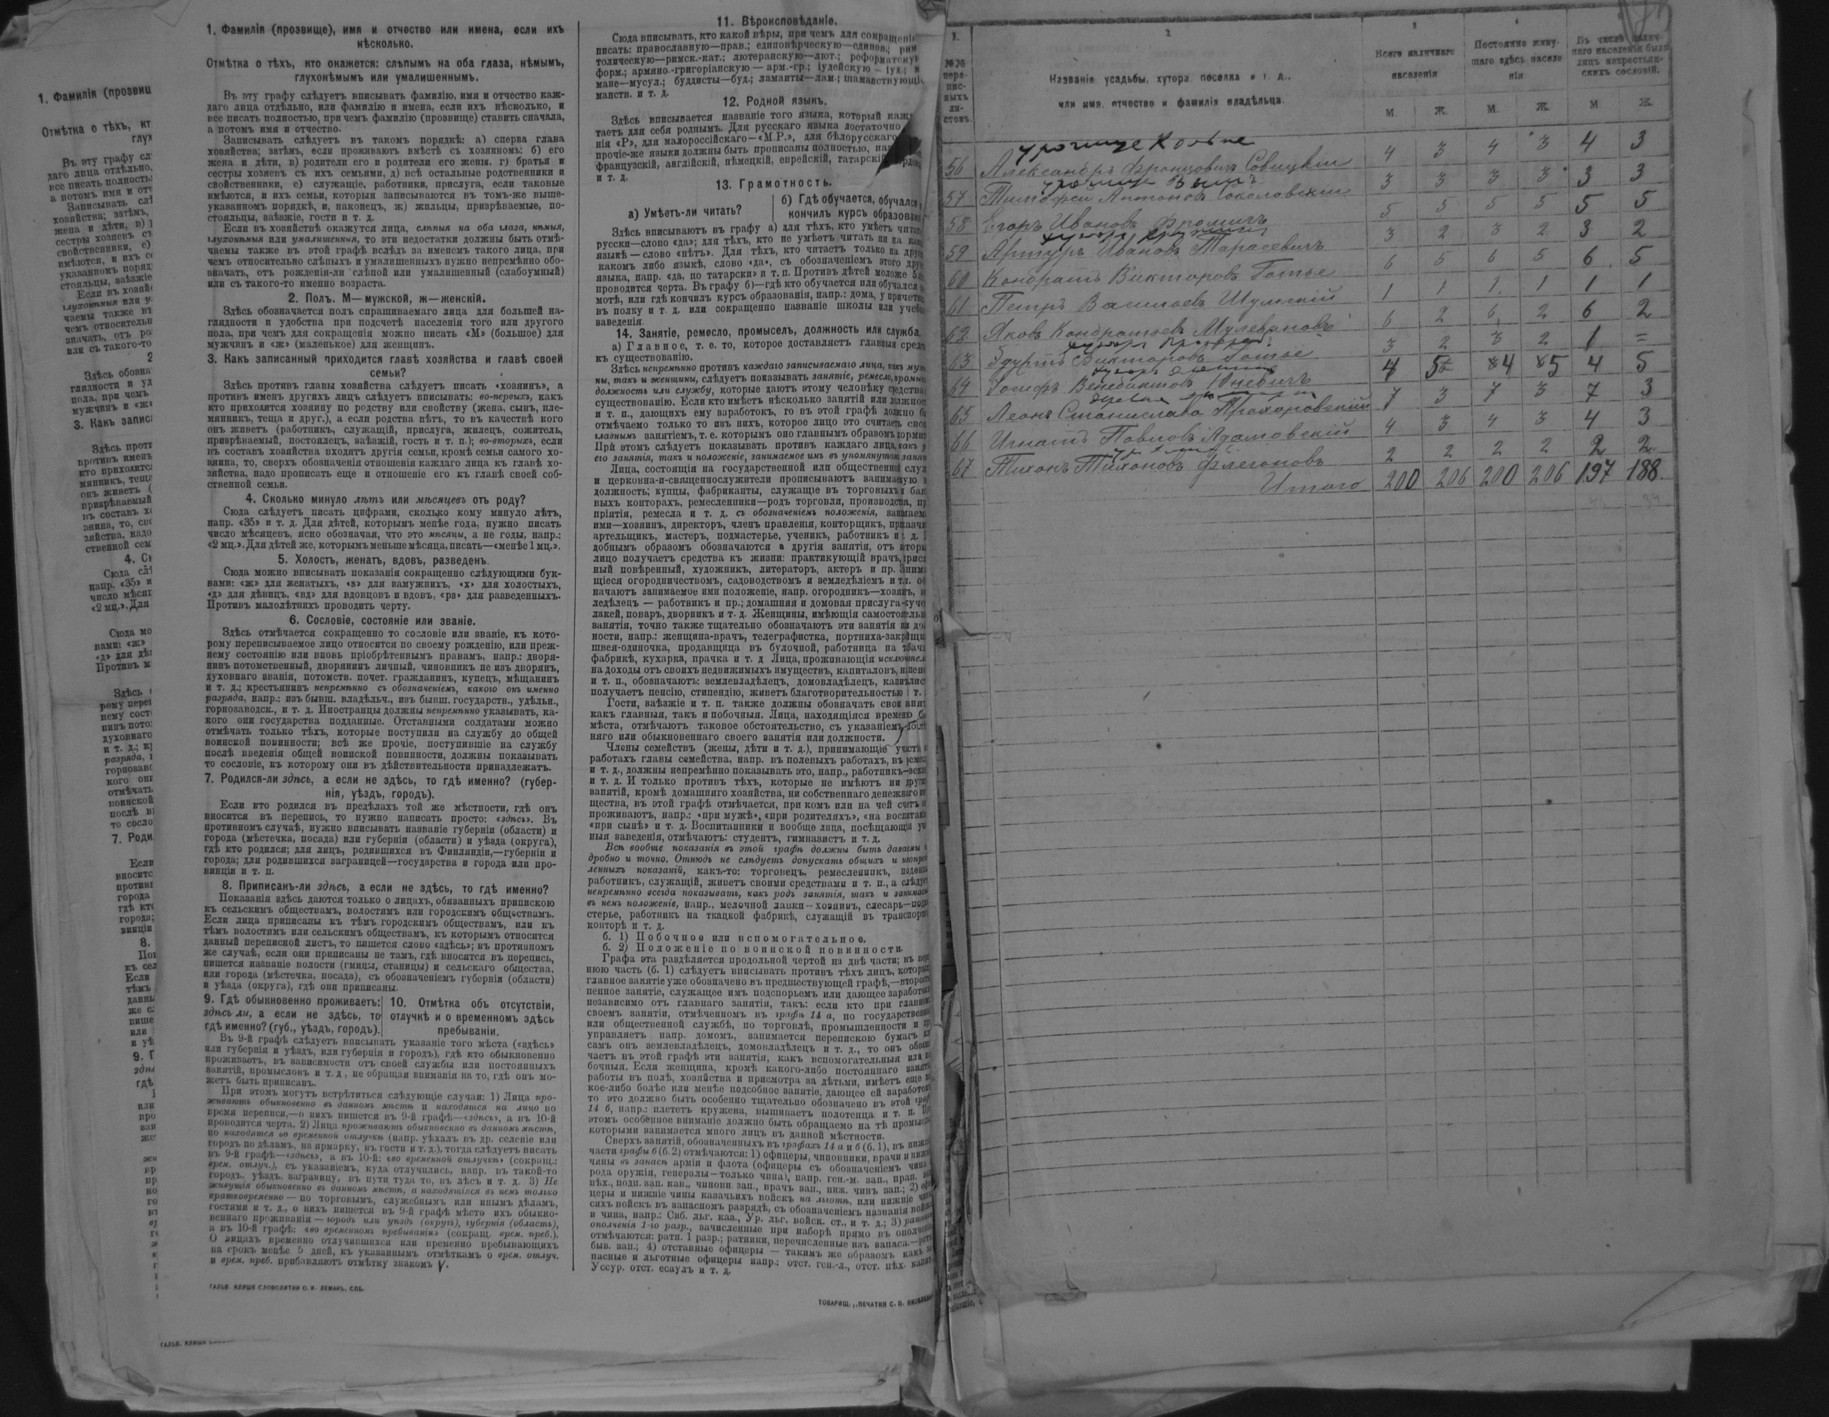 1. Фамилія (прозвище), имя и отчество или имена, если ихъ
нѣсколько.
Отмѣтка о тѣхъ, кто окажется: слѣпымъ на оба глаза, нѣмымъ,
глухонѣмымъ или умалишеннымъ.
Въ эту графу слѣдуетъ вписывать фамилію, имя и отчество каж-
даго лица отдѣльно, или фамилію и имена, если ихъ нѣсколько, и
все писать полностью, при чемъ фамилію (прозвище) ставить сначала,
а потомъ имя и отчество.
Записывать слѣдуетъ въ такомъ порядкѣ: а) сперва глава
хозяйства; затѣмъ, если проживаютъ вмѣстѣ съ хозяиномъ: б) его
жена и дѣти, в) родители его и родители его жены, г) братья и
сестры хозяевъ съ ихъ семьями, д) всѣ остальные родственники и
свойственники, е) служащіе, работники, прислуга, если таковые
имѣются, и ихъ семьи, которыя записываются въ томъ-же выше-
указанномъ порядкѣ, и, наконецъ, ж) жильцы, призрѣваемые, по-
стояльцы, заѣзжіе, гости и т. д.
Если въ хозяйствѣ окажутся лица, слѣпыя на оба глаза, нѣмыя,
глухонѣмыя или умалишенныя, то эти недостатки должны быть отмѣ-
чаемы также въ этой графѣ вслѣдъ за именемъ такого лица, при
чемъ относительно слѣпыхъ и умалишенныхъ нужно непремѣнно обо-
значать, отъ рожденія-ли слѣпой или умалишенный (слабоумный)
или съ такого-то именно возраста.
2. Полъ. М—мужской, ж—женскій.
Здѣсь обозначается полъ спрашиваемаго лица для большей на-
глядности и удобства при подсчетѣ населенія того или другого
пола, при чемъ для сокращенія можно писать «М» (большое) для
мужчинъ и «ж» (маленькое) для женщинъ.
3. Какъ записанный приходится главѣ хозяйства и главѣ своей
семьи?
Здѣсь противъ главы хозяйства слѣдуетъ писать «хозяинъ», а
противъ именъ другихъ лицъ слѣдуетъ вписывать: во-первыхъ, какъ
кто приходится хозяину по родству или свойству (жена, сынъ, пле-
мянникъ, теща и друг.), а если родства нѣтъ, то въ качествѣ кого
онъ живетъ (работникъ, служащій, прислуга, жилецъ, сожитель,
призрѣваемый, постоялецъ, заѣзжій, гость и т. п.); во-вторыхъ, если
въ составъ хозяйства входятъ другія семьи, кромѣ семьи самого хо-
зяина, то, сверхъ обозначенія отношенія каждаго лица къ главѣ хо-
зяйства, надо прописать еще и отношеніе его къ главѣ своей соб-
ственной семьи.
4. Сколько минуло лѣтъ или мѣсяцевъ отъ роду?
Сюда слѣдуетъ писать цифрами, сколько кому минуло лѣтъ,
напр. «35» и т. д. Для дѣтей, которымъ менѣе года, нужно писать
число мѣсяцевъ, ясно обозначая, что это мѣсяцы, а не годы, напр.:
«2 мц.». Для дѣтей же, которымъ меньше мѣсяца, писать—«менѣе 1 мц.».
5. Холостъ, женатъ, вдовъ, разведенъ.
Сюда можно вписывать показанія сокращенно слѣдующими бук-
вами: «ж» для женатыхъ, «з» для замужнихъ, «х» для холостыхъ,
«д» для дѣвицъ, «вд» для вдовцовъ и вдовъ, «ра» для разведенныхъ.
Противъ малолѣтнихъ проводить черту.
6. Сословіе, состояніе или званіе.
Здѣсь отмѣчается сокращенно то сословіе или званіе, къ кото-
рому переписываемое лицо относится по своему рожденію, или преж-
нему состоянію или вновь пріобрѣтеннымъ правамъ, напр.: дворя-
нинъ потомственный, дворянинъ личный, чиновникъ не изъ дворянъ,
духовнаго званія, потомств. почет. гражданинъ, купецъ, мѣщанинъ
и т. д.; крестьянинъ непремѣнно съ обозначеніемъ, какого онъ именно
разряда, напр.: изъ бывш. владѣльч., изъ бывш. государств., удѣльн.,
горнозаводск., и т. д. Иностранцы должны непремѣнно указывать, ка-
кого они государства подданные. Отставными солдатами можно
отмѣчать только тѣхъ, которые поступили на службу до общей
воинской повинности; всѣ же прочіе, поступившіе на службу
послѣ введенія общей воинской повинности, должны показывать
то сословіе, къ которому они въ дѣйствительности принадлежатъ.
7. Родился-ли здѣсь, а если не здѣсь, то гдѣ именно? (губер-
нія, уѣздъ, городъ).
Если кто родился въ предѣлахъ той же мѣстности, гдѣ онъ
вносится въ перепись, то нужно написать просто: «здѣсь». Въ
противномъ случаѣ, нужно вписывать названіе губерніи (области) и
города (мѣстечка, посада) или губерніи (области) и уѣзда (округа),
гдѣ кто родился; для лицъ, родившихся въ Финляндіи,—губерніи и
города; для родившихся заграницей—государства и города или про-
винціи и т. п.
8. Приписанъ-ли здѣсь, а если не здѣсь, то гдѣ именно?
Показанія здѣсь даются только о лицахъ, обязанныхъ припискою
къ сельскимъ обществамъ, волостямъ или городскимъ обществамъ.
Если лица приписаны къ тѣмъ городскимъ обществамъ, или къ
тѣмъ волостямъ или сельскимъ обществамъ, къ которымъ относится
данный переписной листъ, то пишется слово «здѣсь»; въ противномъ
же случаѣ, если они приписаны не тамъ, гдѣ вносятся въ перепись,
пишется названіе волости (гмины, станицы) и сельскаго общества,
или города (мѣстечка, посада), съ обозначеніемъ губерніи (области)
и уѣзда (округа), гдѣ они приписаны.
9. Гдѣ обыкновенно проживаетъ:
здѣсь ли, а если не здѣсь, то
гдѣ именно? (губ., уѣздъ, городъ).
10. Отмѣтка объ отсутствіи,
отлучкѣ и о временномъ здѣсь
пребываніи.
Въ 9-й графѣ слѣдуетъ вписывать указаніе того мѣста («здѣсь»
или губернія и уѣздъ, или губернія и городъ), гдѣ кто обыкновенно
проживаетъ, въ зависимости отъ своей службы или постоянныхъ
занятій, промысловъ и т. д., не обращая вниманія на то, гдѣ онъ мо-
жетъ быть приписанъ.
При этомъ могутъ встрѣтиться слѣдующіе случаи: 1) Лица про-
живаютъ обыкновенно въ данномъ мѣстѣ и находятся на лицо во
время переписи,—о нихъ пишется въ 9-й графѣ—«здѣсь», а въ 10-й
проводится черта. 2) Лица проживаютъ обыкновенно въ данномъ мѣстѣ,
но находятся во временной отлучкѣ (напр. уѣхалъ въ др. селеніе или
городъ по дѣламъ, на ярмарку, въ гости и т. д.), тогда слѣдуетъ писать
въ 9-й графѣ—«здѣсь», а въ 10-й: «во временной отлучкѣ» (сокращ.:
врем. отлуч.), съ указаніемъ, куда отлучились, напр. въ такой-то
городъ, уѣздъ, заграницу, въ пути туда то, въ лѣсъ и т. д. 3) Не
живущія обыкновенно въ данномъ мѣстѣ, а находящіяся въ немъ только
кратковременно — по торговымъ, служебнымъ или инымъ дѣламъ,
гостями и т. д., о нихъ пишется въ 9-й графѣ мѣсто ихъ обыкно-
веннаго проживанія — городъ или уѣздъ (округъ), губернія (область),
а въ 10-й графѣ: «во временномъ пребываніи» (сокращ. врем. преб.).
О лицахъ временно отлучившихся или временно пребывающихъ
на срокъ менѣе 5 дней, къ указаннымъ отмѣткамъ о врем. отлуч.
и врем. преб. прибавляютъ отмѣтку знакомъ V.
ГАЛЬВ. КЛИШЕ СЛОВОЛИТНИ О. И. ЛЕМАНЪ, СПБ.
11. Вѣроисповѣданіе.
Сюда вписывать, кто какой вѣры, при чемъ для сокращенія
писать: православную—прав.; единовѣрческую—единов.; рим
толическую—римск.-кат.; лютеранскую—лют.; реформатскую
форм.; армяно-григоріанскую — арм.-гр.; іудейскую — іуд.;
мане—мусул.; буддисты—буд.; ламаиты—лам.; шаманствующі
манств. и т. д.
12. Родной языкъ.
Здѣсь вписывается названіе того языка, который каж
таетъ для себя роднымъ. Для русскаго языка достаточно
нія «Р», для малороссійскаго—«М.Р.», для бѣлорусскаго
прочіе-же языки должны быть прописаны полностью, на
французскій, англійскій, нѣмецкій, еврейскій, татарскій
и т. д.
13. Грамотность.
а) Умѣетъ-ли читать?
б) Гдѣ обучается, обучался
кончилъ курсъ образован
Здѣсь вписываютъ въ графу а) для тѣхъ, кто умѣетъ чита
русски—слово «да»; для тѣхъ, кто не умѣетъ читать ни на
языкѣ — слово «нѣтъ». Для тѣхъ, кто читаетъ только на
какомъ либо языкѣ, слово «да», съ обозначеніемъ этого
языка, напр. «да, по татарски» и т. п. Противъ дѣтей моложе 5
проводится черта. Въ графу б)—гдѣ кто обучается или обучался
мотѣ, или гдѣ кончилъ курсъ образованія, напр.: дома, у причетн
въ полку и т. д. или сокращенно названіе школы или учеб
заведенія.
14. Занятіе, ремесло, промыселъ, должность или служба.
а) Главное, т. е. то, которое доставляетъ главныя сред
къ существованію.
Здѣсь непремѣнно противъ каждаго записываемаго лица, какъ муж
ны, такъ и женщины, слѣдуетъ показывать занятіе, ремесло, промы
должность или службу, которые даютъ этому человѣку средства
существованію. Если кто имѣетъ нѣсколько занятій или должно
и т. п., дающихъ ему заработокъ, то въ этой графѣ должно б
отмѣчаемо только то изъ нихъ, которое лицо это считаетъ своимъ
главнымъ занятіемъ, т. е. которымъ оно главнымъ образомъ кормит
При этомъ слѣдуетъ показывать противъ каждаго лица, какъ
его занятіе, такъ и положеніе, занимаемое имъ въ упомянутомъ занят
Лица, состоящія на государственной или общественной служ
и церковно-и-священнослужители прописываютъ занимаемую
должность; купцы, фабриканты, служащіе въ торговыхъ и бан
выхъ конторахъ, ремесленники—родъ торговли, производства,
пріятія, ремесла и т. д. съ обозначеніемъ положенія, занимаем
ими—хозяинъ, директоръ, членъ правленія, конторщикъ, прикащи
артельщикъ, мастеръ, подмастерье, ученикъ, работникъ и т. д.
добнымъ образомъ обозначаются и другія занятія, отъ котор
лицо получаетъ средства къ жизни: практикующій врачъ, прис
ный повѣренный, художникъ, литераторъ, актеръ и пр. Заним
щіеся огородничествомъ, садоводствомъ и земледѣліемъ и т. п. об
начаютъ занимаемое ими положеніе, напр. огородникъ—хозяинъ,
ледѣлецъ — работникъ и пр.; домашняя и домовая прислуга-куче
лакей, поваръ, дворникъ и т. д. Женщины, имѣющія самостоятельн
занятія, точно также тщательно обозначаютъ эти занятія и
ности, напр.: женщина-врачъ, телеграфистка, портниха-закройщ
швея-одиночка, продавщица въ булочной, работница на ткач
фабрикѣ, кухарка, прачка и т. д. Лица, проживающія исключител
на доходы отъ своихъ недвижимыхъ имуществъ, капиталовъ,
и т. п., обозначаютъ: землевладѣлецъ, домовладѣлецъ, капиталис
получаетъ пенсію, стипендію, живетъ благотворительностью
Гости, заѣзжіе и т. п. также должны обозначать свои занят
какъ главныя, такъ и побочныя. Лица, находящіяся временно
мѣста, отмѣчаютъ таковое обстоятельство, съ указаніемъ
няго или обыкновеннаго своего занятія или должности.
Члены семействъ (жены, дѣти и т. д.), принимающіе участ
работахъ главы семейства, напр. въ полевыхъ работахъ, въ ремес
и т. д., должны непремѣнно показывать это, напр., работникъ—
и т. д. И только противъ тѣхъ, которые не имѣютъ ни друг
занятій, кромѣ домашняго хозяйства, ни собственнаго денежнаго
щества, въ этой графѣ отмѣчается, при комъ или на чей счетъ
проживаютъ, напр.: «при мужѣ», «при родителяхъ», «на воспитан
«при сынѣ» и т. д. Воспитанники и вообще лица, посѣщающія
ныя заведенія, отмѣчаютъ: студентъ, гимназистъ и т. д.
Всѣ вообще показанія въ этой графѣ должны быть даваемы
дробно и точно. Отнюдь не слѣдуетъ допускать общихъ и неопред
ленныхъ показаній, какъ-то: торговецъ, ремесленникъ, поденщ
работникъ, служащій, живетъ своими средствами и т. п., а слѣдует
непремѣнно всегда показывать, какъ родъ занятія, такъ и занимаем
въ немъ положеніе, напр., мелочной лавки—хозяинъ, слесарь—подм
стерье, работникъ на ткацкой фабрикѣ, служащій въ транспорт
конторѣ и т. д.
б. 1) Побочное или вспомогательное.
б. 2) Положеніе по воинской повинности.
Графа эта раздѣляется продольной чертой на двѣ части; въ верх
нюю часть (б. 1) слѣдуетъ вписывать противъ тѣхъ лицъ, которы
главное занятіе уже обозначено въ предшествующей графѣ,—второс
пенное занятіе, служащее имъ подспорьемъ или дающее заработок
независимо отъ главнаго занятія, такъ: если кто при главном
своемъ занятіи, отмѣченномъ въ графѣ 14 а, по государственн
или общественной службѣ, по торговлѣ, промышленности и пр
управляетъ напр. домомъ, занимается перепискою бумагъ
самъ онъ землевладѣлецъ, домовладѣлецъ и т. д., то онъ обозн
чаетъ въ этой графѣ эти занятія, какъ вспомогательныя или
бочныя. Если женщина, кромѣ какого-либо постояннаго занят
работы въ полѣ, хозяйства и присмотра за дѣтьми, имѣетъ еще
кое-либо болѣе или менѣе подсобное занятіе, дающее ей заработок
то это должно быть особенно тщательно обозначено въ этой граф
14 б, напр.: плететъ кружева, вышиваетъ полотенца и т. п. При
этомъ особенное вниманіе должно быть обращаемо на тѣ промыслы
которыми занимается много лицъ въ данной мѣстности.
Сверхъ занятій, обозначенныхъ въ графахъ 14 а и б (б. 1), въ нижн
части графы б (б. 2) отмѣчаются: 1) офицеры, чиновники, врачи и нижн
чины въ запасѣ арміи и флота (офицеры съ обозначеніемъ чина
рода оружія, генералы—только чина), напр. ген.-м. зап., прап.
пѣх., подп. зап. кав., чиновн. зап., врачъ зап., ниж. чинъ зап.; 2) офи
церы и нижніе чины казачьихъ войскъ на льготѣ, или нижніе чин
сихъ войскъ въ запасномъ разрядѣ, съ обозначеніемъ названія войска
и чина, напр.: Сиб. льг. каз., Ур. льг. войск. ст., и т. д.; 3) ратники
ополченія 1-го разр., зачисленные при наборѣ прямо въ ополчен
отмѣчаются: ратн. 1 разр.; ратники, перечисленные изъ запаса.—ратн
быв. зап.; 4) отставные офицеры — такимъ же образомъ какъ за
пасные и льготные офицеры напр.: отст. ген.-л., отст. пѣх. капит
Уссур. отст. есаулъ и т. д.
ТОВАРИЩ. „ПЕЧАТНЯ С. П. ЯКОВЛЕВА
1.
№№ пере-
пис-
ныхъ
ли-
стовъ.
2
Названіе усадьбы, хутора поселка и т. д.,
или имя, отчество и фамилія владѣльца.
3
Всего наличнаго
населенія
М. Ж.
4
Постоянно живу-
щаго здѣсь населе
нія
М. Ж.
Въ числѣ налич-
наго населенія было
лицъ некрестьян-
скихъ сословій.
М Ж.
урочище
56 Александръ Францовичъ Савицкій 4 3 4 3 4 3
урочище
57 Тимофей Антоновъ Соколовскій 3 3 3 3 3 3
58 Егоръ Ивановъ Фроличъ 5 5 5 5 5 5
59 Артуръ Ивановъ Тарасевичъ 3 2 3 2 3 2
60 Кондратъ Викторовъ Готье 6 5 6 5 6 5
61 Петръ Васильевъ Шумскій 1 1 1 1 1 1
62 Яковъ Кондратьевъ 6 2 6 2 6 2
63 Викторовъ Готье 3 2 3 2 1 =
64 Іосифъ Венедиктовъ Юневичъ 4 5 4 5 4 5
65 Леонъ Станислава Прохоровскій 7 3 7 3 7 3
66 Игнатъ Павловъ Адамовскій 4 3 4 3 4 3
67 Тихонъ Тихоновъ Флегоновъ 2 2 2 2 2 2
Итого 200 206 200 206 197 188